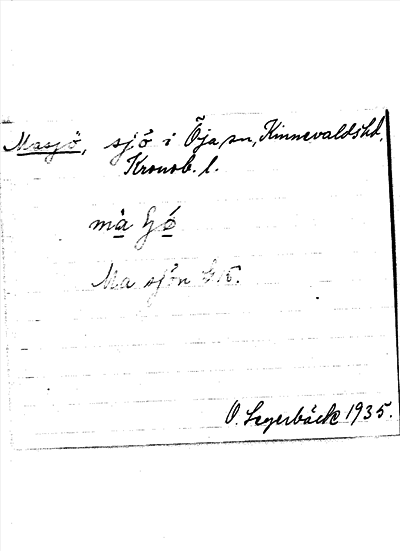 Masjö, sjö i Öja sn, Kinnevalds hd,
Kronob. l.
Ma sjön GK.
O. Segerbäck 1935.